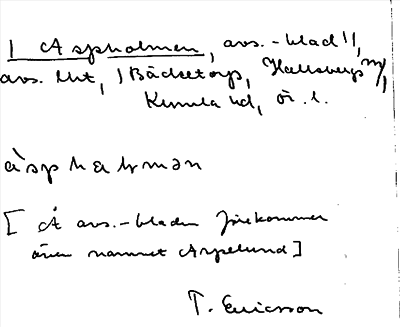 | Aspholmen, avs.-blad !|,
avs. till, | Bäcketorp, Hallsbergs
Kumla hd, Ör. l.
àsphalmən
[ Å avs.-bladen förekommer
även namnet Asplund ]
T. Ericsson